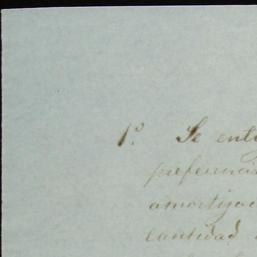 1º. Se ent
preferencia
amortizac
cantidad